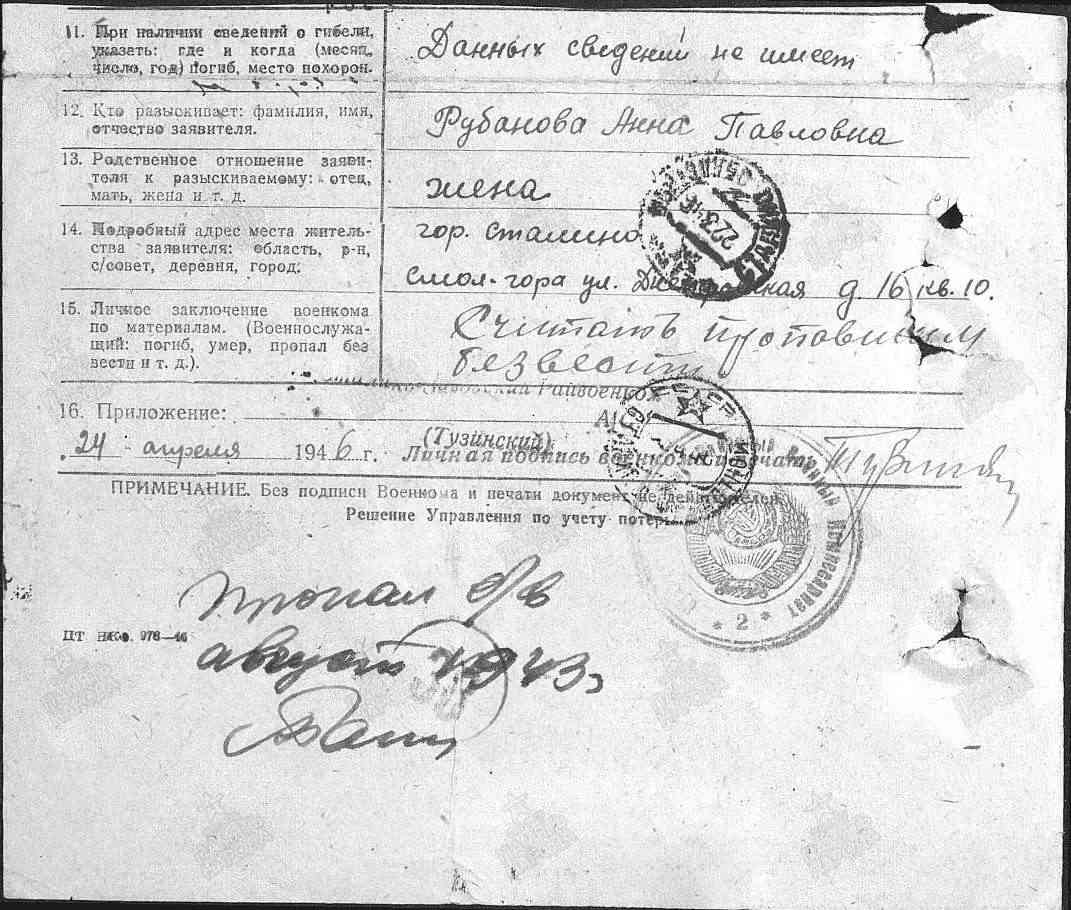 11. При наличии сведений о гибели,
указать: где и когда (месяц,
число, год) погиб, место похорон.
Данных сведений не имеет
12. Кто разыскивает: фамилия, имя,
отчество заявителя.
Рубанова Анна Павловна
13. Родственное отношение заяви-
теля к разыскиваемому: отец,
мать, жена и т. д.
жена
14. Подробный адрес места житель-
ства заявителя: область, р-н,
с/совет, деревня, город:
гор. Сталино
Смол-гора ул. д. 16 кв. 10.
15. Личное заключение военкома
по материалам. (Военнослужа-
щий: погиб, умер, пропал без
вести и т. д.).
Считать пропавшим
безвести
Райвоенком
16. Приложение:
(Тузинский)
24 апреля 1946 г. Личная подпись военкома и печать
ПРИМЕЧАНИЕ. Без подписи Военкома и печати документ не действителен
Решение Управления по учету потерь
22346
Военный Комиссариат
* 2 *
пропал б/в
ЦТ НКО. 978—46
август 1943г